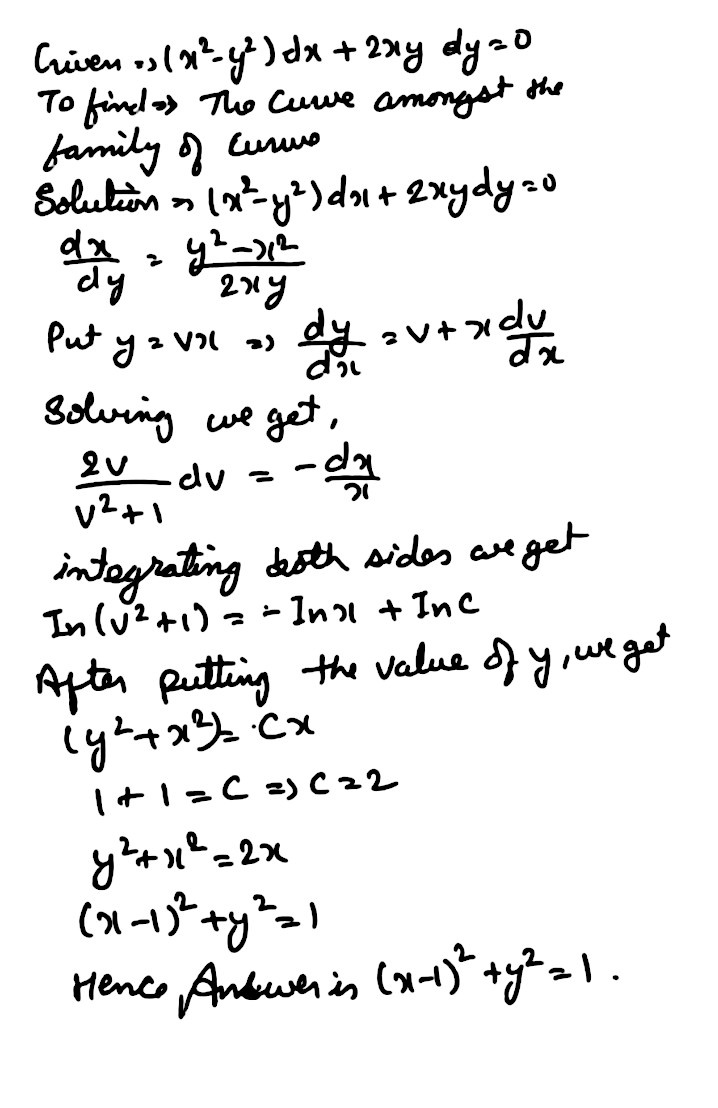 Given => (x²-y²) dx + 2xy dy = 0
To find => The Curve amongst the
family of Curves
Solution => (x²-y²) dx + 2xy dy = 0
dx/dy = (y²-x²)/(2xy)
Put y = vx => dy/dx = v + x dv/dx
Solving we get,
2v/(v²+1) dv = - dx/x
integrating both sides we get
In (v²+1) = - In x + In C
After putting the value of y, we get
(y²+x²) = Cx
1 + 1 = C => C = 2
y²+x² = 2x
(x-1)² + y² = 1
Hence, Answer is (x-1)² + y² = 1 .